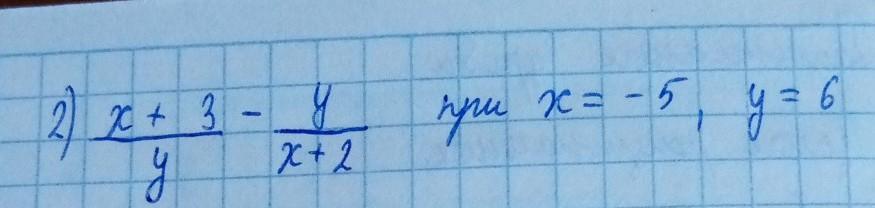 2) (x + 3)/y - y/(x + 2) при x = -5, y = 6